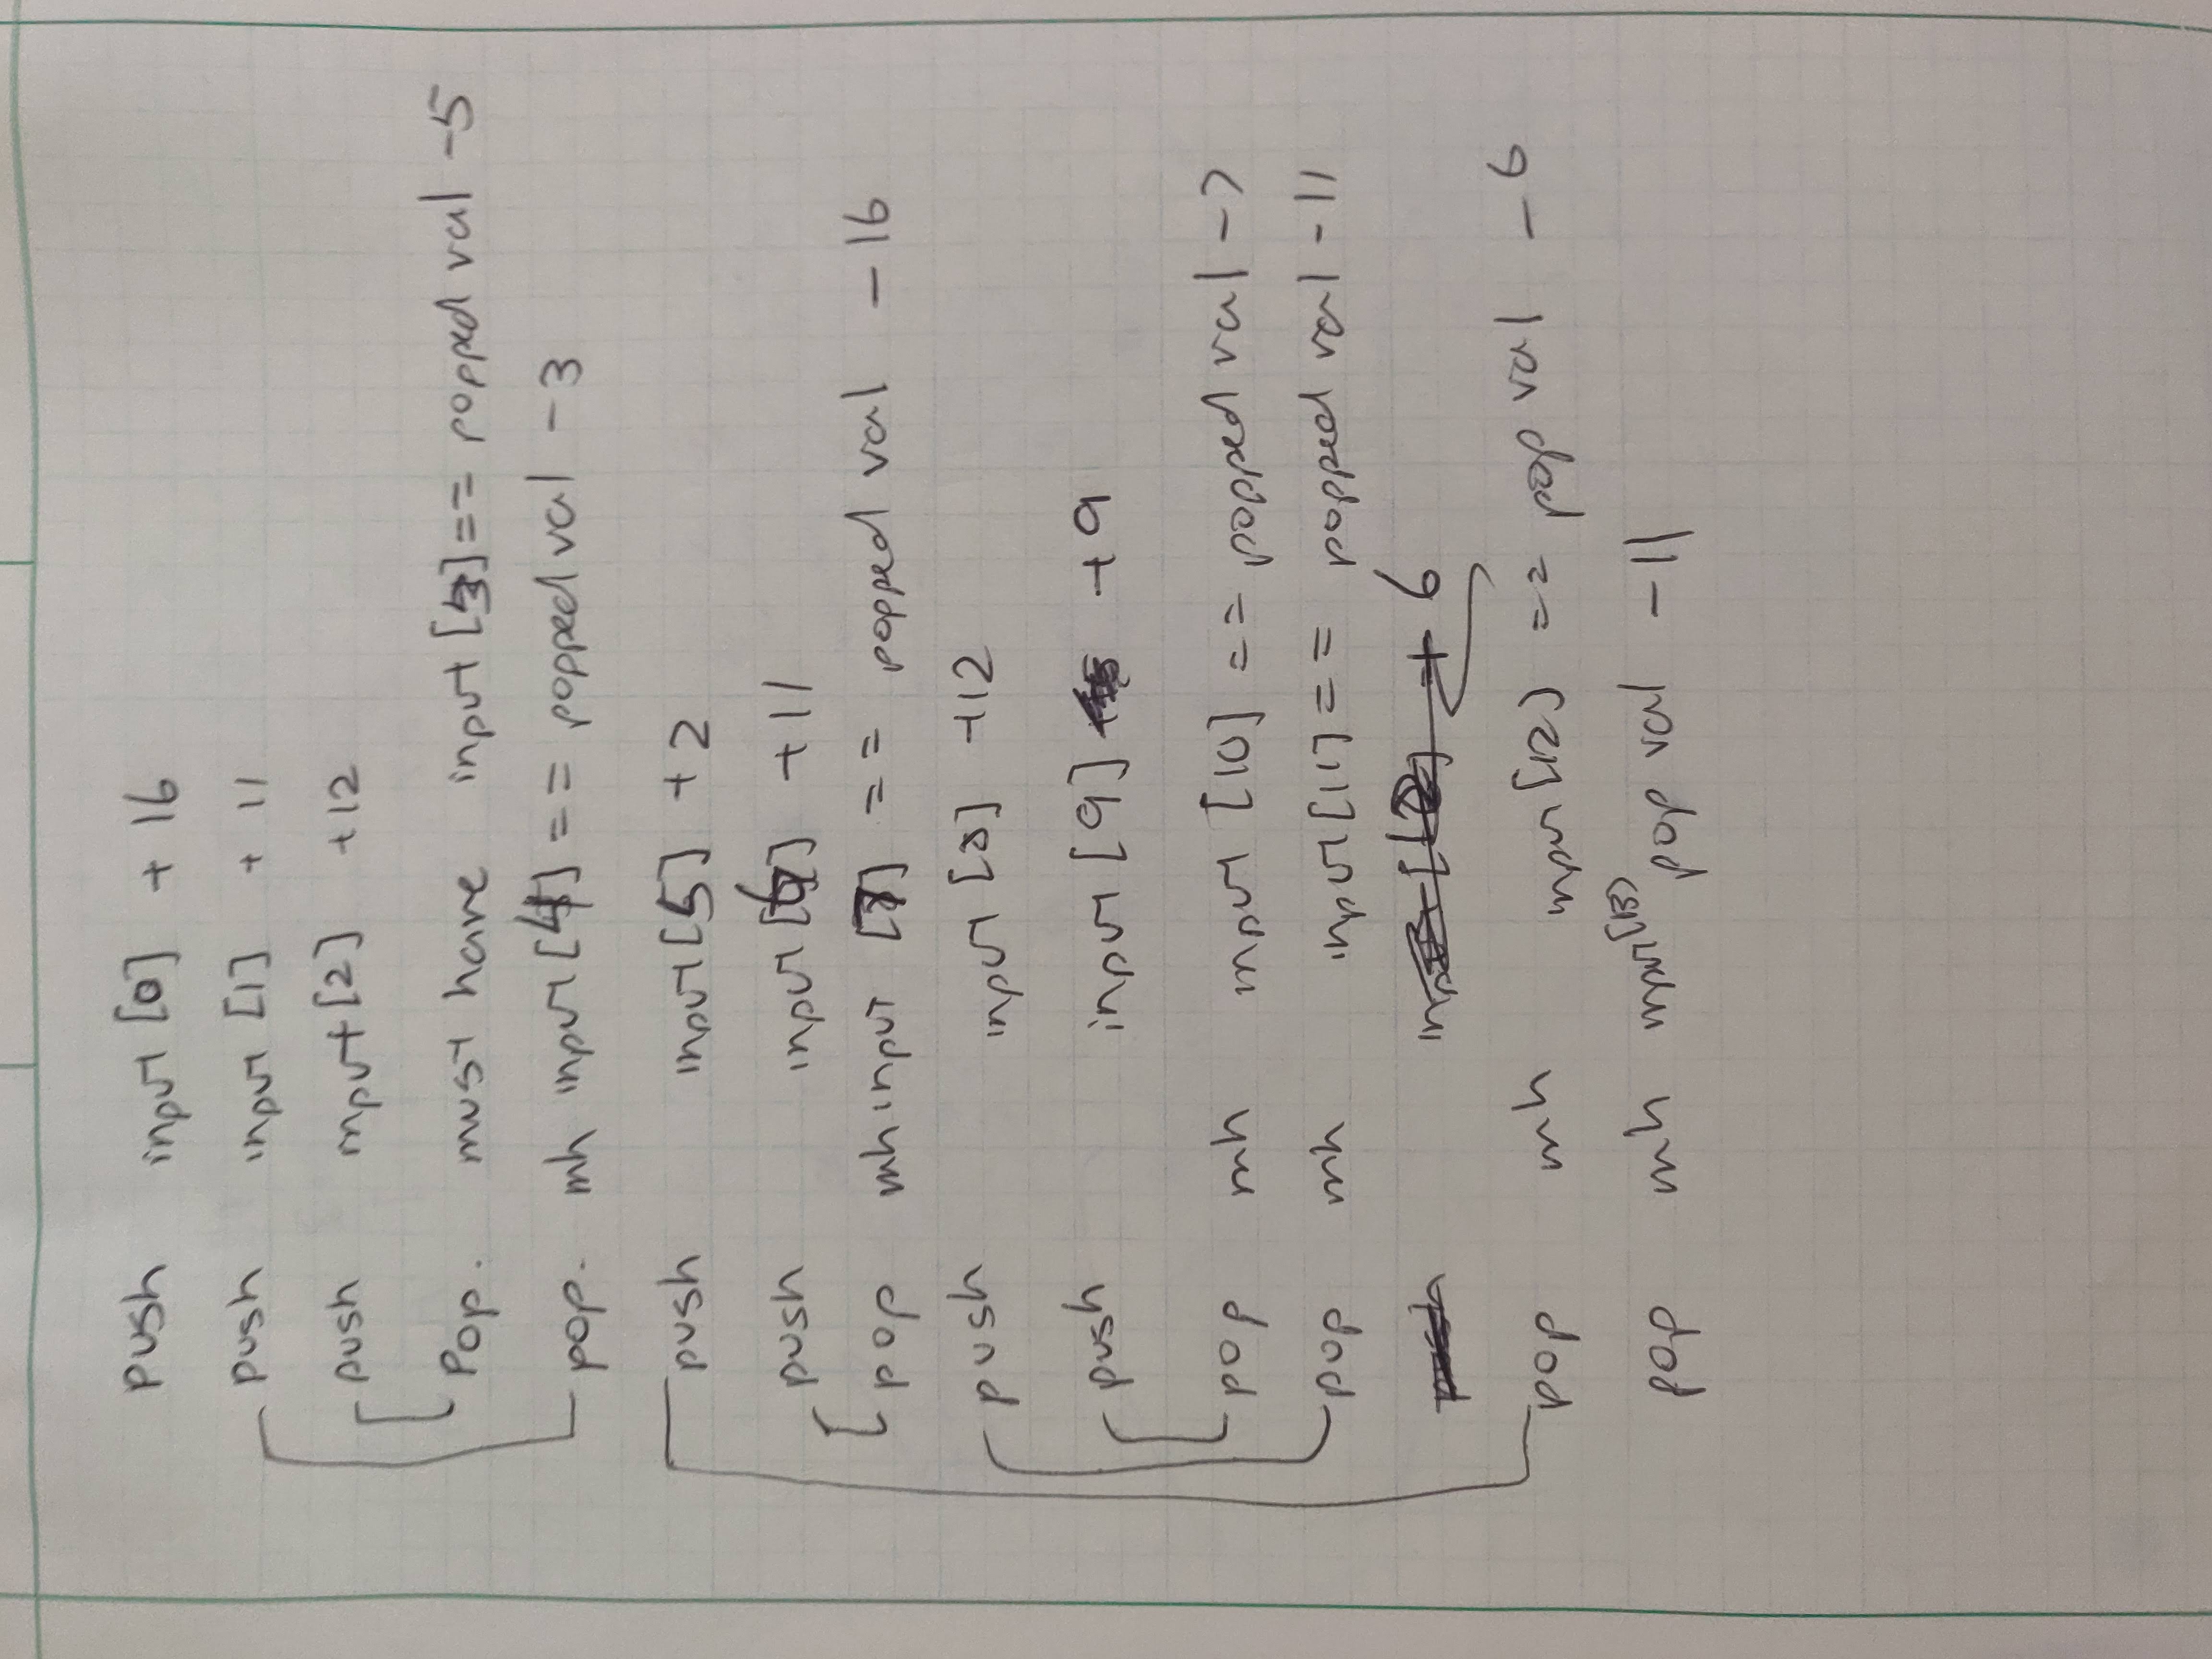 push input [0] + 16
push input [1] + 11
push input [2] +12
Pop. must have input [3] == popped val -5
pop. mh input [4] == popped val -3
push input [5] +2
push input [6] +11
pop mh input [7] == popped val -16
push input [8] +12
push input [9] +9
pop mh input [10] == popped val -7
pop mh input [11] == popped val -11
push input [12] + 6
pop mh input [12] == pop val -6
pop mh input [13] pop val -11